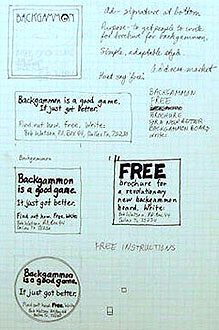 BACKGAMMON
ad - signature at bottom
Purpose - to get people to write
for brochure for backgammon.
Simple, adaptable style
business market
Must say "free"
Backgammon is a good game.
It just got better.
Find out how. free. Write
Bob Watson, P.O. Box 44, Dallas, Tx. 75238
BACKGAMMON
FREE
BROCHURE
BACKGAMMON BOARD
WRITE
Backgammon
Backgammon
is a good game.
It just got better.
Find out how. free. Write
Bob Watson P.O. Box 44
Dallas Tx 75238
FREE
brochure for
a revolutionary
new backgammon
board. Write:
Bob Watson, P.O. Box 44
Dallas Tx 75238
FREE INSTRUCTIONS
Backgammon
is a good game.
It just got better.
Find out how. free. Write
Bob Watson P.O. Box 44
Dallas, Tx 75238